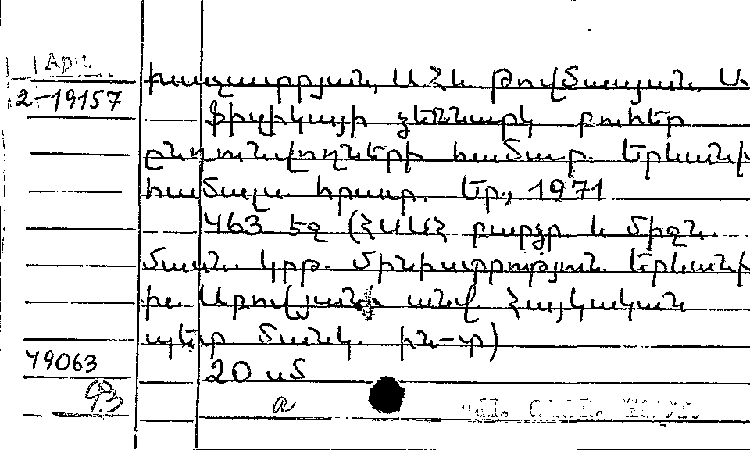 Арм.
2-19157
Խաչատրյան, Ա.Հ. և Թովմասյան, Ա.
Ֆիզիկայի ձեռնարկ բուհեր
ընդունվողների համար. Երևանի
համալս. հրատ. Եր., 1971
463 էջ (ՀՍՍՀ բարձր. և միջն.
մասն. կրթ. մինիստրություն. Երևանի
Խ. Աբովյանի անվ. Հայկական
պետ. մանկ. ին-տ)
79063
20 սմ
93
a